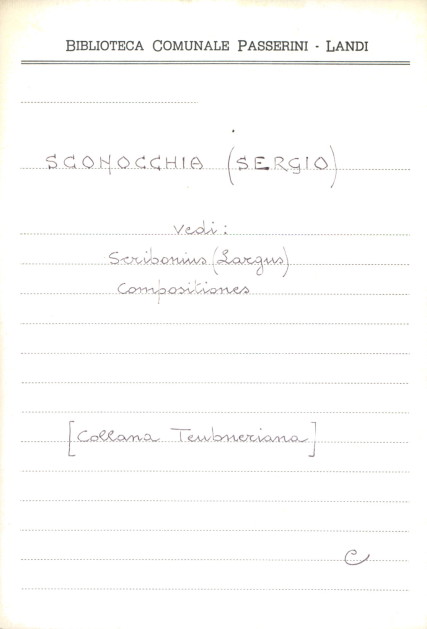 BIBLIOTECA COMUNALE PASSERINI - LANDI
SCONOCCHIA (SERGIO)
vedi:
Scribonius (Largus)
Compositiones
[Collana Teubneriana]
C